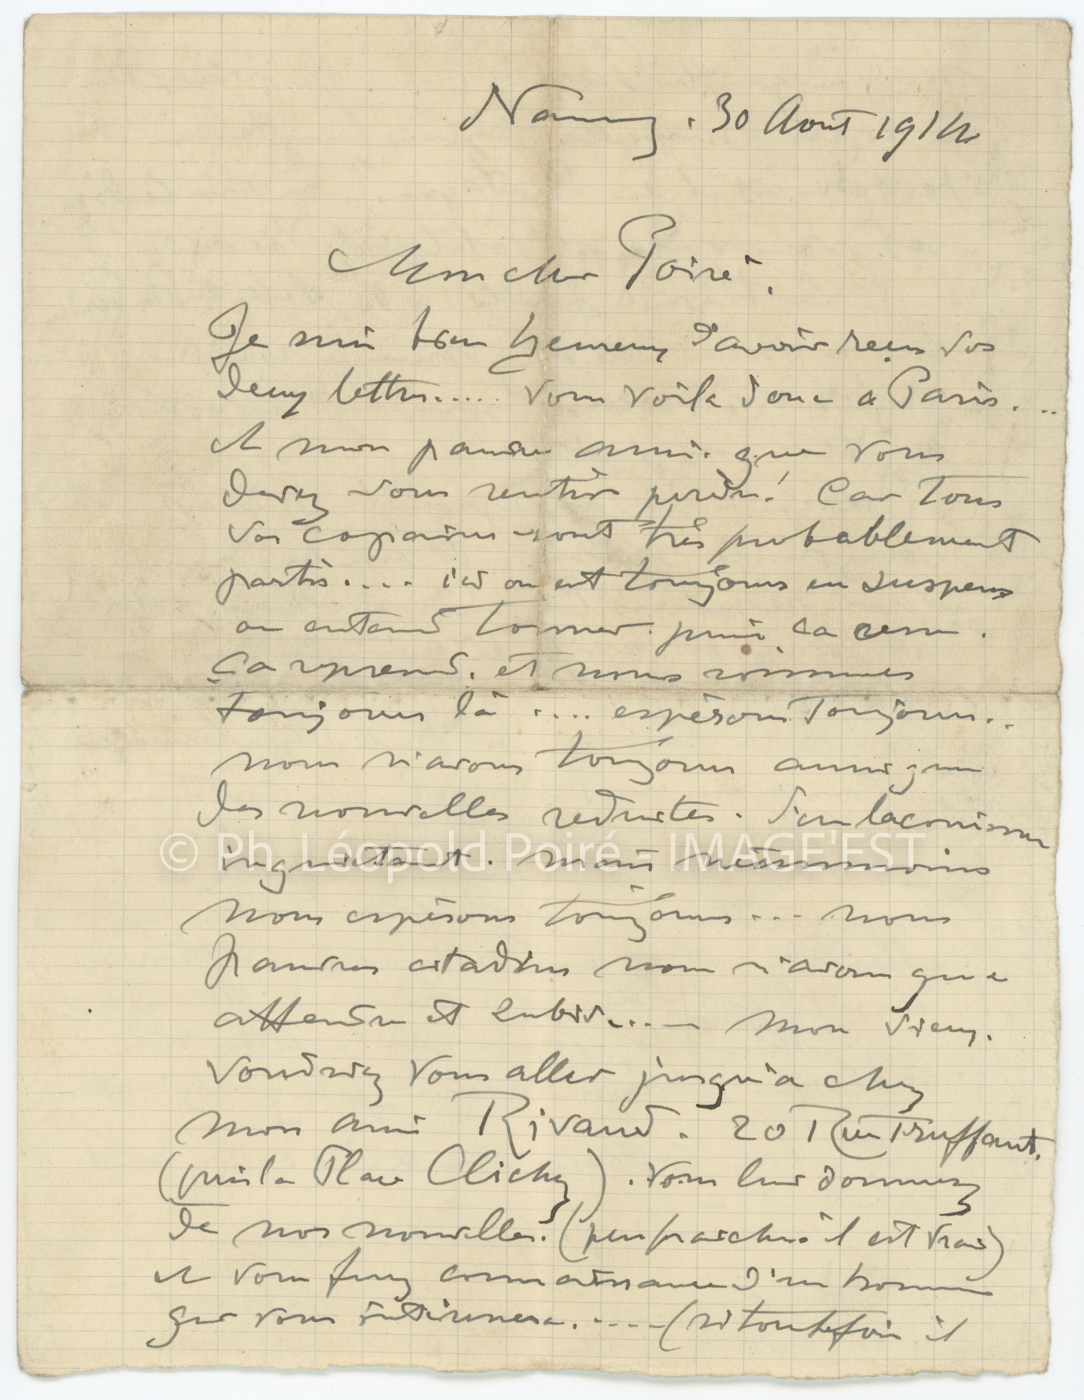 Nancy. 30 Aout 1914
Mon cher Poiré.
Je suis bien heureux d'avoir reçu vos
deux lettres..... Vous voilà donc à Paris....
et mon pauvre ami. que vous
devez vous sentir perdu! Car tous
vos copains sont très probablement
partis.... ici on est toujours en suspens
on entend tonner. puis ça cesse.
Ça reprend. et nous sommes
toujours là .... espérons toujours...
nous n'avons toujours aussi que
des nouvelles réduites. d'un laconisme
inquiétant. mais néanmoins
nous espérons toujours... nous
pauvres citadins nous n'avons que
attendre et subir..... Mon vieux.
Voudriez vous aller jusqu'à chez
mon ami Rivaud. 20 Rue Truffaut.
(puis la Place Clichy). Vous leur donnerez
de nos nouvelles. (peu fraiches il est vrai)
et vous ferez connaissance d'un homme
qui vous intéressera. .....(si toutefois il
© Ph. Léopold Poiré - IMAGE'EST